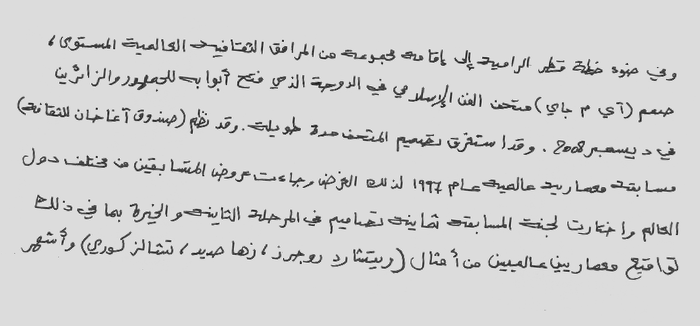 وفي ضوء خطة قطر الرامية إلى إقامة مجموعة من المرافق الثقافية العالمية المستوى،
صمم (آي م باي) متحف الفن الإسلامي في الدوحة الذي فتح أبوابه للجمهور والزائرين
في ديسمبر 2008. وقد استغرق تصميم المتحف مدة طويلة. وقد نظم (صندوق آغاخان للثقافة)
مسابقة معمارية عالمية عام 1997 لذلك الغرض وجاءت عروض المتسابقين من مختلف دول
العالم واختارت لجنة المسابقة ثمانية تصاميم في المرحلة الثانية والأخيرة بما في ذلك
تواقيع معماريين عالميين من أمثال (ريتشارد روجرز، زها حديد، تشالز كوري) وأشهر